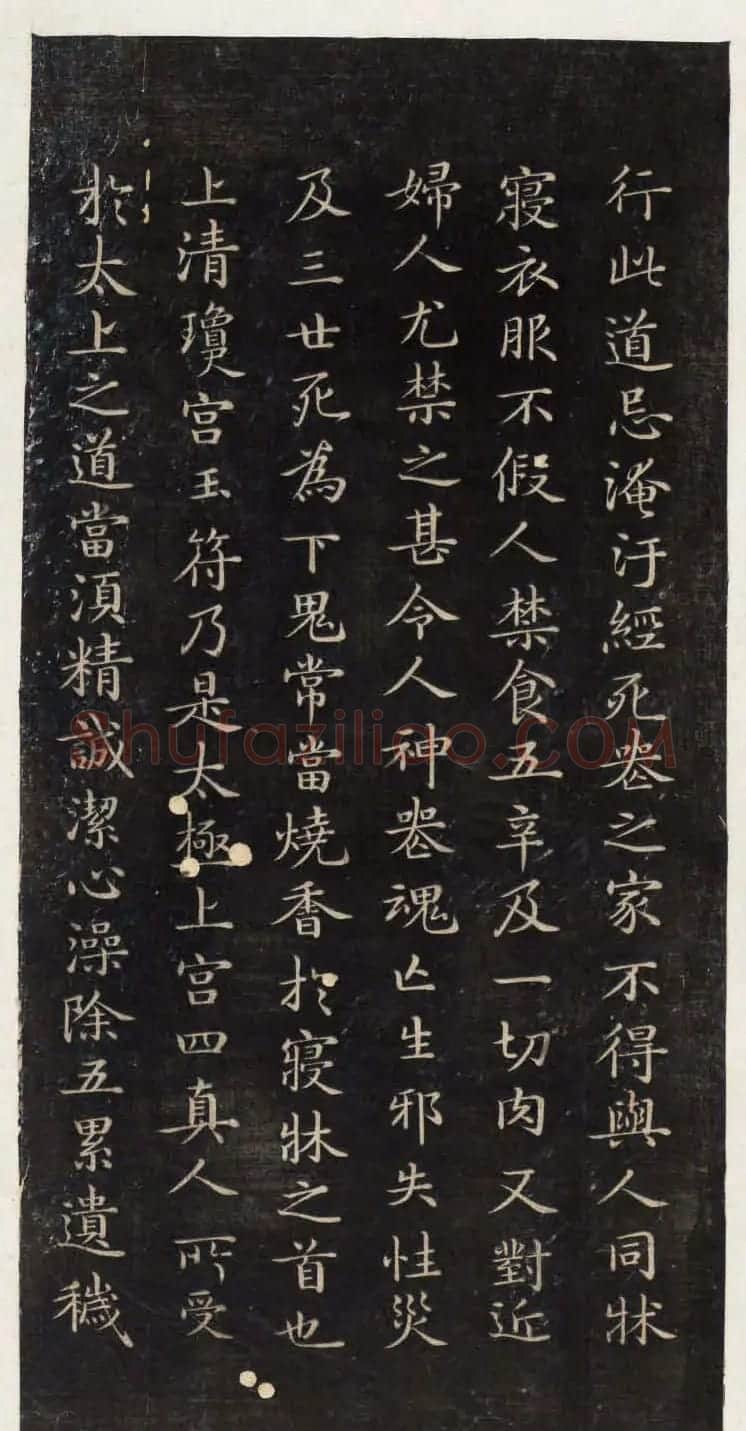 行此道忌淹汙經死喪之家不得與人同牀
寢衣服不假人禁食五辛及一切肉又對近
婦人尤禁之甚令人神喪魂亡生邪失性災
及三世死為下鬼常當燒香於寢牀之首也
上清瓊宮玉符乃是太極上宮四真人所受
於太上之道當須精誠潔心澡除五累遺穢
Shufaziliao.COM